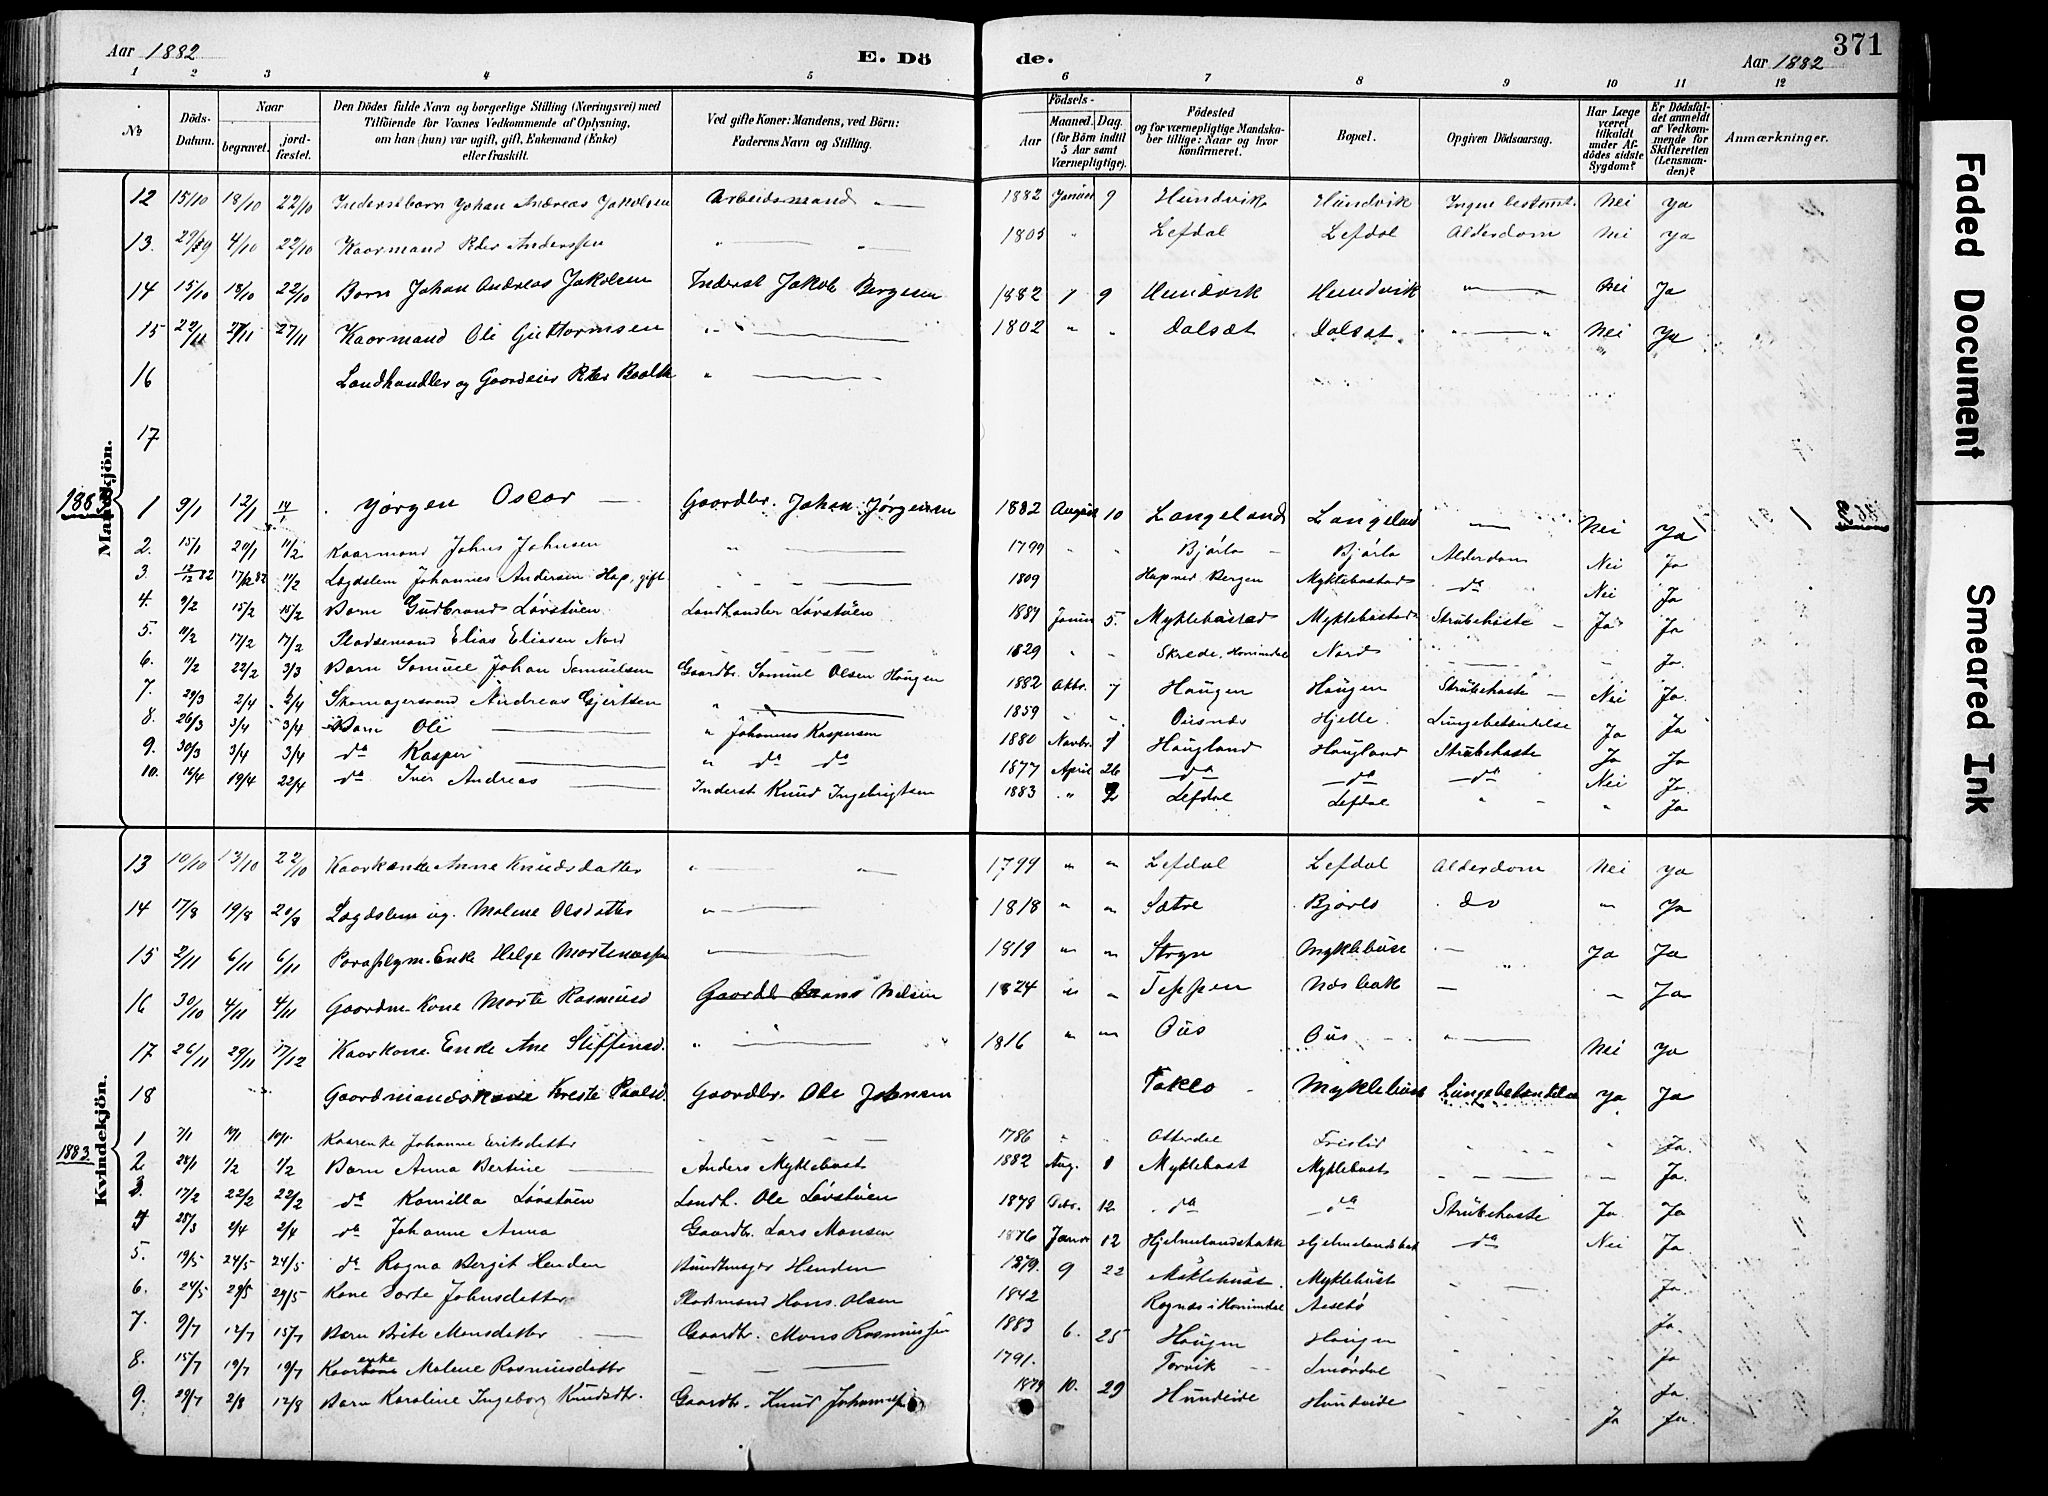 Aar 1882
E. Döde.
Aar 1882
371
1 2 3 4 5 6 7 8 9 10 11 12
No
Döds-Datum.
Naar begravet. jordfæstet.
Den Dödes fulde Navn og borgerlige Stilling (Næringsvei) med Tilföiende for Voxnes Vedkommende af Oplysning, om han (hun) var ugift, gift, Enkemand (Enke) eller fraskilt.
Ved gifte Koner: Mandens, ved Börn: Faderens Navn og Stilling.
Födsels- Aar Maaned. Dag. (for Börn indtil 5 Aar samt Værnepligtige).
Födested og for værnepligtige Mandskaber tillige: Naar og hvor konfirmeret.
Bopæl.
Opgiven Dödsaarsag.
Har Læge været tilkaldt under Afdödes sidste Sygdom?
Er Dödsfaldet anmeldt af Vedkommende for Skifteretten (Lensmanden)?
Anmærkninger.
Mandkjön.
12 15/10 18/10 22/10 Inderstbarn Johan Andreas Jakobsen Arbeidsmand 1882 9 Hundvik Hundvik Nei Ja
13. 4/10 22/10 Kaarmand Peter Anderssen 1805 Lefdal Lefdal Alderdom Nei Ja
14 15/10 18/10 22/10 Barn Johan Andreas Jakobsen Inderst Jakob Børgesen 1882 1 9 Hundvik Hundvik Nei Ja
15 22/11 27/11 27/11 Kaarmand Ole Guttormsen 1802 Dalsæt Dalsæt Nei Ja
16 Landhandler og Gaardeier
17
1883
1 9/1 12/1 14/1 Jørgen Oscar Gaardbr. Johan Jørgensen 1882 August 10 Langeland Langeland Nei Ja
2. 15/1 20/1 11/2 Kaarmand Johns Johnsen 1799 Bjørlo Bjørlo Alderdom Nei Ja
3 12/12 82 17/12 82 11/2 Lægdslem Johannes Andersen Hap, gift 1809 Myklebostad do Nei Ja
4. 9/2 15/2 15/2 Barn Gudbrand Løvstuen Landhandler Løvstuen 5. Myklebustad Myklebostad Strubehoste Ja Ja
5. 11/2 17/2 17/2 Pladsemand Elias Eliasen Nord 1829 Skrede, Hornindal Nord Ja
6. 7/2 22/2 3/3 Barn Samuel Johan Samuelsen Gaardbr. Samuel Olsen Haugen 1882 Oktbr. 7 Haugen Haugen Strubehoste Nei Ja.
7. 29/3 2/4 2/4 Skomagersvend Andreas Gjertsen 1859 Ousnæs Hjelle Lungebetændelse Ja Ja
8. 26/3 3/4 3/4 Barn Ole Johannes Kaspersen 1880 Novbr. Haugland Haugland Strubehoste Ja Ja
9. 30/3 3/4 3/4 do Kasper do do 1877 April 26 do do do Nei Ja
10. 16/4 19/4 22/4 do Iver Andreas Inderst Knud Ingebrigtsen 1883 Lefdal Lefdal Ja
Kvindekjön.
13 10/10 13/10 22/10 Kaarkone Anne Knudsdatter 1799 Lefdal Lefdal Alderdom Nei Ja
14 17/8 19/8 20/8 Lægdslem ug. Malene Olsdatter 1818 Sætre Bjørlo do Ja
15 2/11 6/11 6/11 Enke Helge 1819 Stryn Myklebust Ja Ja
16 30/10 4/11 4/11 Gaardm. Kone Marte Rasmusd Gaardb. Nilsen 1824 Teppen Næsbak Ja
17 26/11 29/11 17/12 Kaarkone. Enke Ane Stiffensd. 1816 Ous Ous Nei Ja
18 Gaardmandskone Kreste Paalsd. Gaardbr. Ole Johnsen Taklo Myklebust Lungebetændelse Ja Ja
1883.
1 7/1 10/1 Kaarenke Johanne Eriksdatter 1786 Otterdal Frislid Ja.
2. 28/1 1/2 1/2 Barn Anna Bertine Anders Myklebust 1882 Aug. 8 Myklebust Myklebust Ja.
3. 17/2 22/2 22/2 do Kamilla Løvstuen Landh. Ole Løvstuen 1878 12 do do Strubehoste Ja Ja
4 28/3 2/4 2/4 do Johanne Anna Gaardbr. Lars Monsen 1876 Januar 12 Hjelmelandsbakk Hjelmelandsbak do Nei Ja
5. 19/5 24/5 24/5 do Ragna Bergit Henden Bundtmager Henden 1879. 9 22 Myklebust Myklebust Ja.
6. 24/5 29/5 29/5 Kone Dorte Johnsdatter Pladsmand Hans Olsen 1842 Rognæs i Hornindal Aasebø Ja.
7. 9/7 12/7 15/7 Barn Brite Monsdatter Gaardbr. Mons Rasmussen 1883 6. 25 Haugen Haugen Ja
8. 15/7 19/7 19/7 Kaarenke Malene Rasmusdatter 1791. Torvik Smørdal Ja.
9. 29/7 2/8 12/8 Barn Karoline Ingeborg Knudsdtr. Gaardbr. Knud 1879 10. 29 Hundeide Hundeide Ja Ja.
Faded Document
Smeared Ink